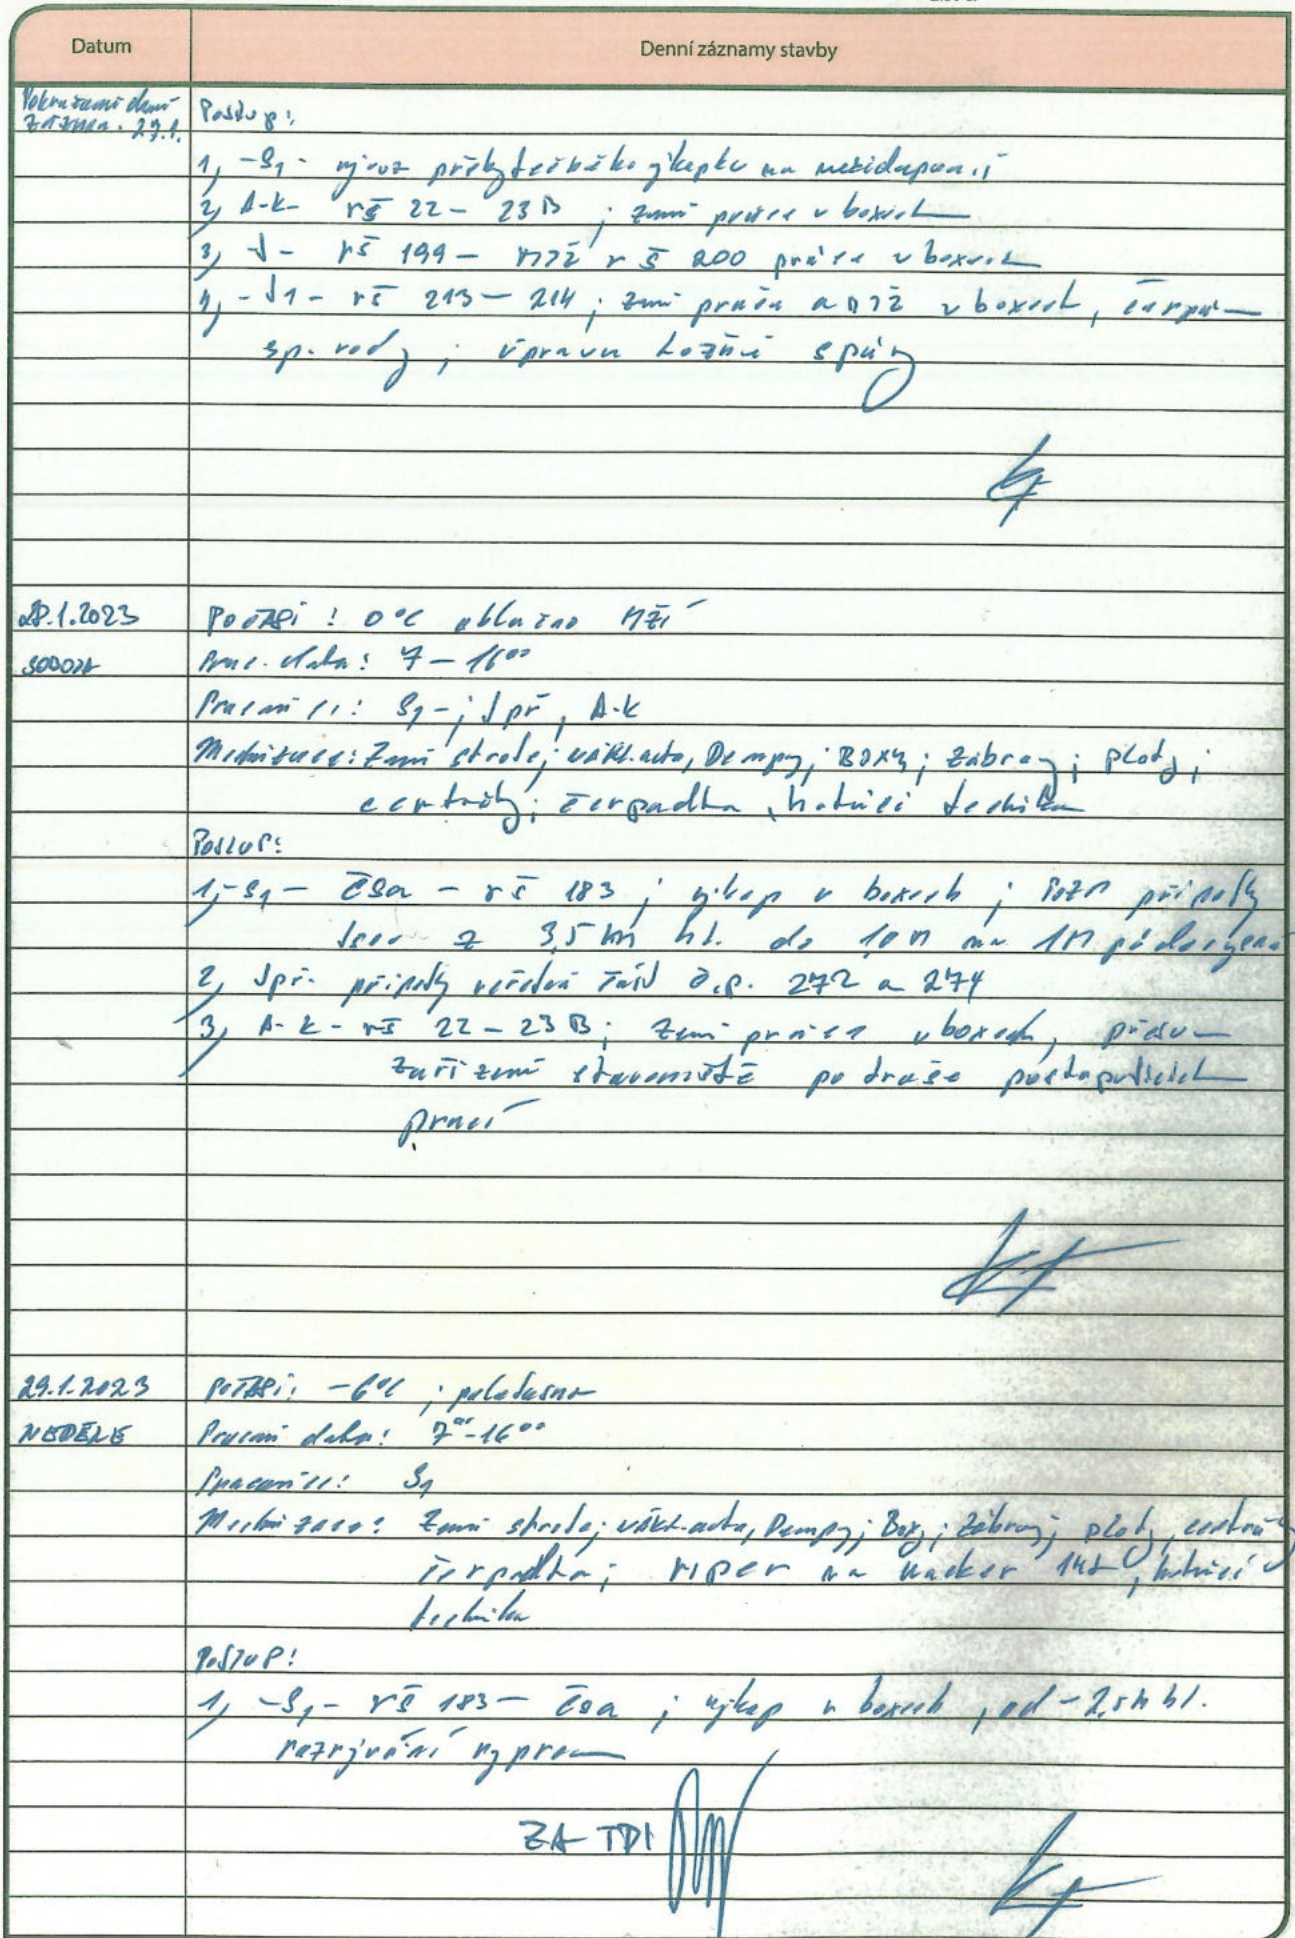 Datum
Denní záznamy stavby
Pokračování denní
záznam. 27.1.
Postup:
1, -S1- vývoz přebytečného výkopku na mezideponii
2, A-K- rš 22 - 23 B ; zemní práce v boxech
3, J - rš 199 - rš 200 práce v boxech
4, - J1 - rš 213 - 214 ; zemní práce a v boxech, čerpání
sp. vody ; úprava ložné spáry
28.1.2023
SOBOTA
POČASÍ : 0°C oblačno MŽÍ
Prac. doba: 7 - 16 00
Pracovníci: S1 - ; Jpř , A-K
Mechanizace: Zemní stroje; nákl. auta, Dempy; BOXY; zábrany; ploty;
centrály; čerpadla, hutnící technika
POSTUP:
1, -S1 - ČSA - rš 183 ; výkop v boxech ; přípojky
z 3,5 m hl. do
2, Jpř. přípojky č.p. 272 a 274
3, A-K - rš 22 - 23 B; zemní práce v boxech, přesun
zařízení staveniště po trase postupujících
prací
29.1.2023
NEDĚLE
POČASÍ: -6°C ; polojasno
Pracovní doba: 7 00 - 16 00
Pracovníci: S1
Mechanizace: Zemní stroje; nákl. auta, Dempy; Boxy; Zábrany; ploty, centrály
čerpadla; riper na 14t, hutnící
technika
POSTUP:
1, -S1- rš 183 - ČSA ; výkop v boxech , od - 2,5 m hl.
rozrývání ryprem
ZA TDI